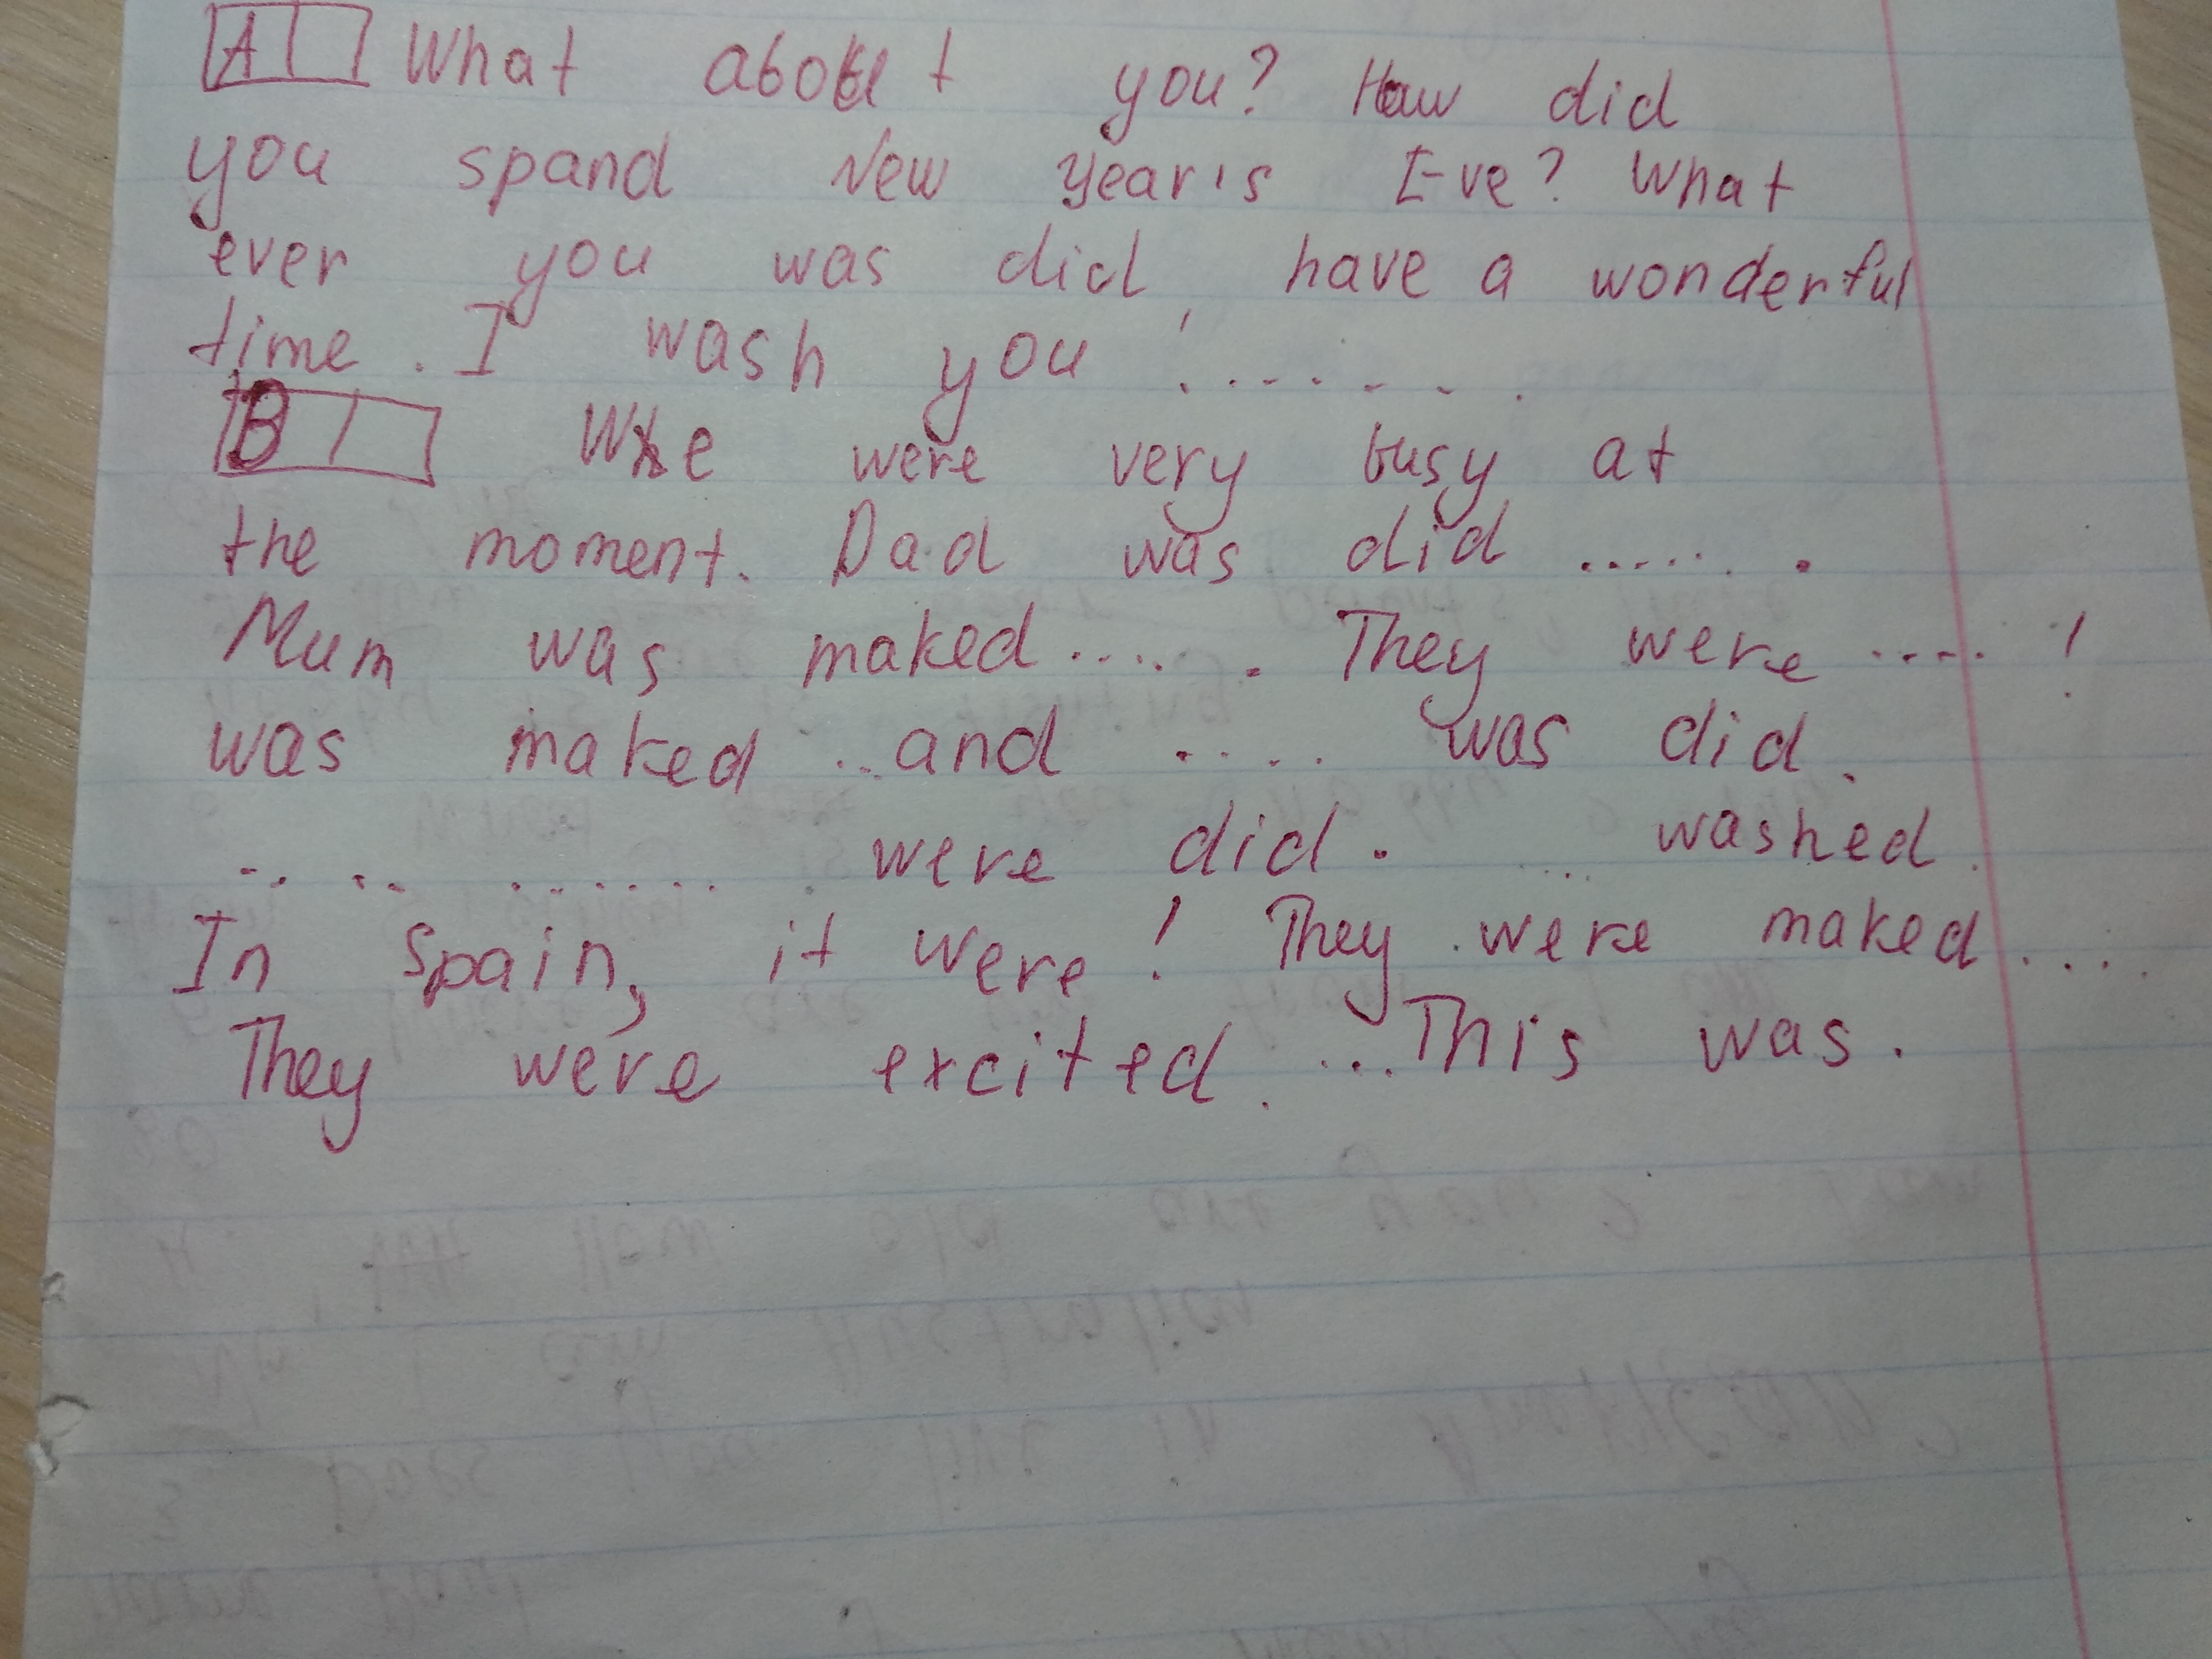 A What about you? How did
you spand New Year's Eve? What
ever you was did, have a wonderful
time. I wash you! .......
B We were very busy at
the moment. Dad was did ...... .
Mum was maked ..... . They were ....!
was maked ..and ..... was did.
.. .. ....... . were did. .... washed.
In Spain, it were! They were maked ....
They were excited. ...This was.